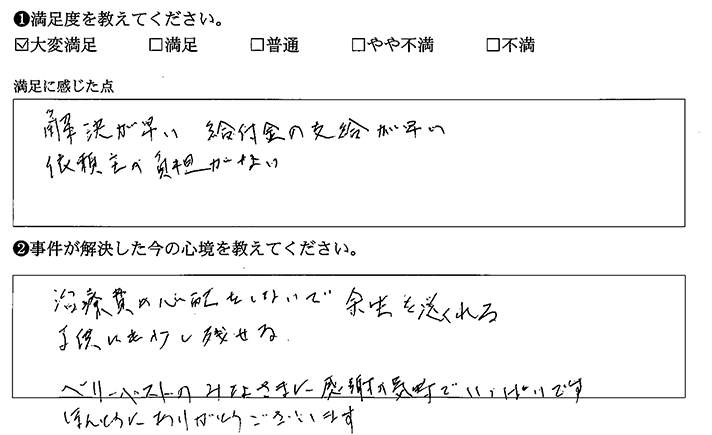 ❶満足度を教えてください。
☑大変満足 □満足 □普通 □やや不満 □不満
満足に感じた点
解決が早い 給付金の支給が早い
依頼主の負担がない
❷事件が解決した今の心境を教えてください。
治療費の心配をしないで 余生を送くれる
子供にも少し残せる
ベリーベストのみなさまに感謝の気持でいっぱいです
ほんとうにありがとうございます